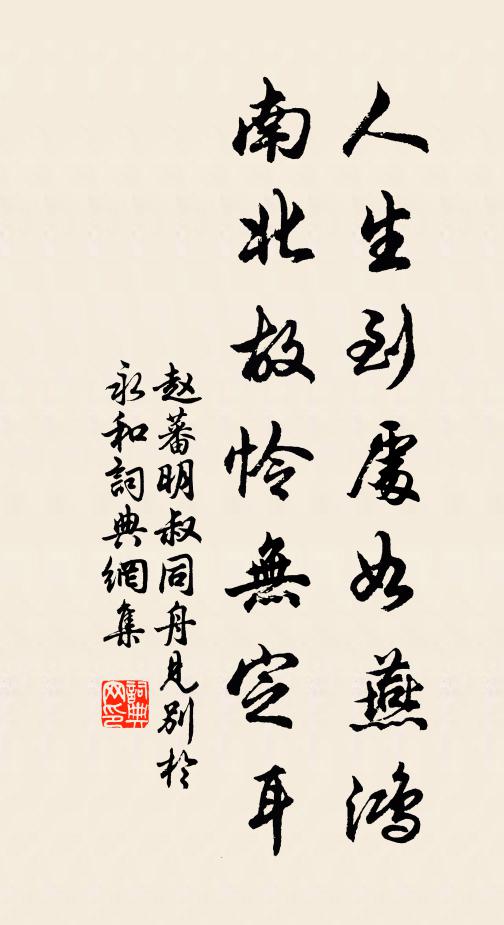 人生到處如燕鴻
南北故怜無定耳
赵蕃明叔同舟見别於
永和詞典網集
詞典网印